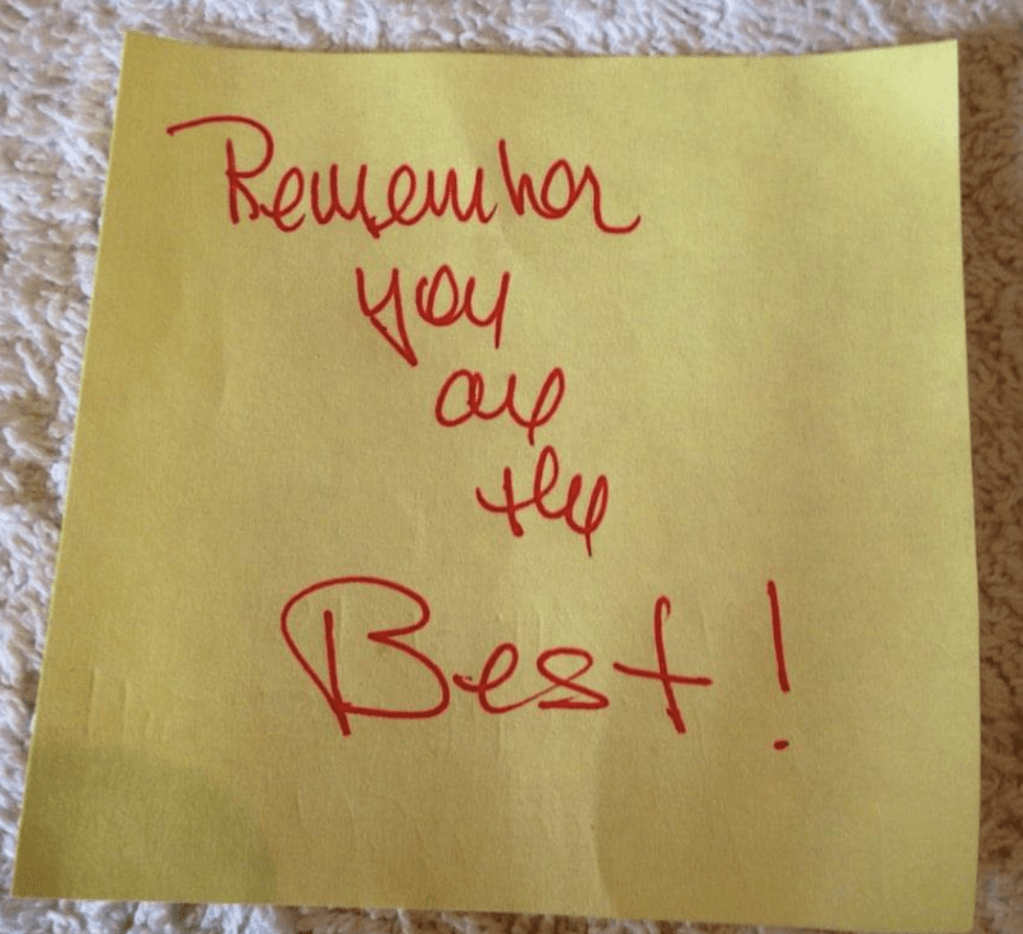 Remember
you
are
the
Best!